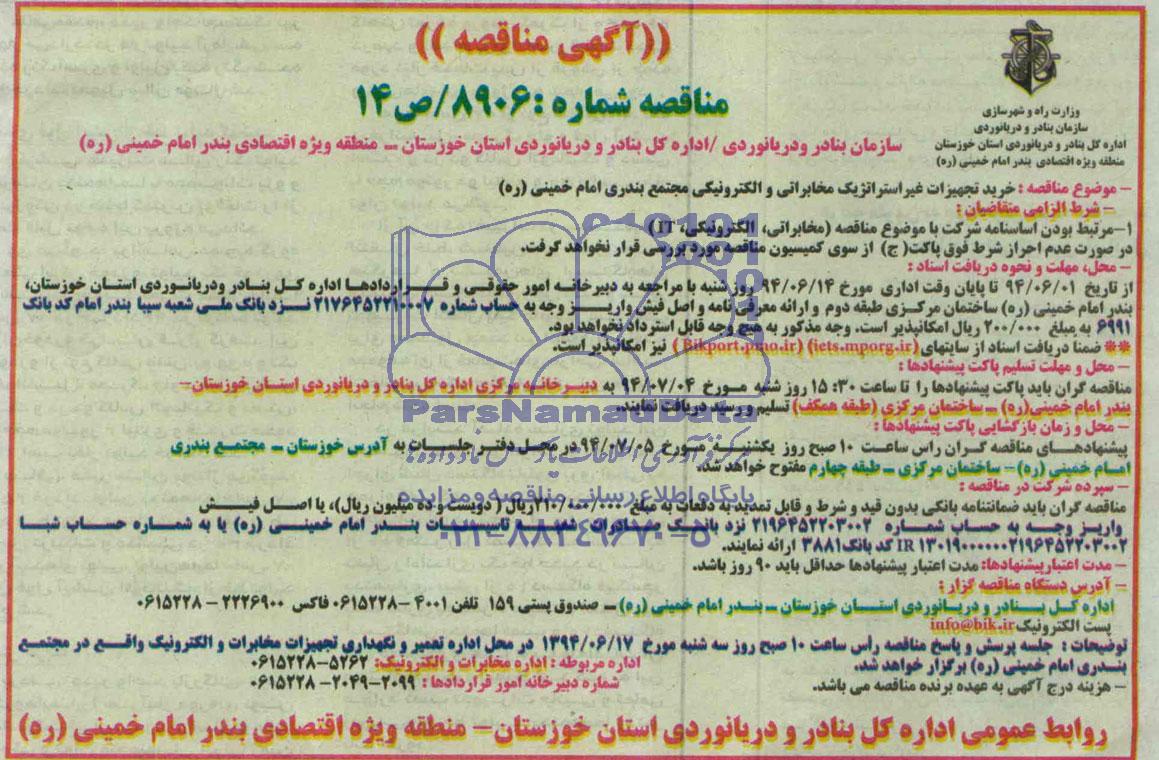 ((آگهی مناقصه))
مناقصه شماره :۸۹۰۶/ص۱۴
وزارت راه و شهرسازی
سازمان بنادر و دریانوردی
اداره کل بنادر و دریانوردی استان خوزستان
منطقه ویژه اقتصادی بندر امام خمینی (ره)
سازمان بنادر ودریانوردی /اداره کل بنادر و دریانوردی استان خوزستان – منطقه ویژه اقتصادی بندر امام خمینی (ره)
– موضوع مناقصه : خرید تجهیزات غیراستراتژیک مخابراتی و الکترونیکی مجتمع بندری امام خمینی (ره)
– شرط الزامی متقاضیان :
۱–مرتبط بودن اساسنامه شرکت با موضوع مناقصه (مخابراتی، الکترونیکی، IT)
در صورت عدم احراز شرط فوق پاکت( ج) از سوی کمیسیون مناقصه مورد بررسی قرار نخواهد گرفت.
– محل، مهلت و نحوه دریافت اسناد :
از تاریخ ۹۴/۰۶/۰۱ تا پایان وقت اداری مورخ ۹۴/۰۶/۱۴ روز شنبه با مراجعه به دبیرخانه امور حقوقی و قراردادها اداره کل بنادر ودریانوردی استان خوزستان،
بندر امام خمینی (ره) ساختمان مرکزی طبقه دوم و ارائه معرفی نامه و اصل فیش واریز وجه به حساب شماره ۲۱۷۶۴۵۲۲۱۰۰۰۷ نزد بانک ملی شعبه سیبا بندر امام کد بانک
۶۹۹۱ به مبلغ ۲۰۰/۰۰۰ ریال امکانپذیر است. وجه مذکور به هیچ وجه قابل استرداد نخواهد بود.
** ضمنا دریافت اسناد از سایتهای (iets.mporg.ir) (Bikport.pmo.ir) نیز امکانپذیر است.
– محل و مهلت تسلیم پاکت پیشنهادها :
مناقصه گران باید پاکت پیشنهادها را تا ساعت ۱۵:۳۰ روز شنبه مورخ ۹۴/۰۷/۰۴ به دبیرخانه مرکزی اداره کل بنادر و دریانوردی استان خوزستان–
بندر امام خمینی(ره) – ساختمان مرکزی (طبقه همکف) تسلیم و رسید دریافت نمایند.
– محل و زمان بازگشایی پاکت پیشنهادها :
پیشنهادهای مناقصه گران راس ساعت ۱۰ صبح روز یکشنبه مورخ ۹۴/۰۷/۰۵ در محل دفتر جلسات به آدرس خوزستان – مجتمع بندری
امام خمینی (ره) – ساختمان مرکزی – طبقه چهارم مفتوح خواهد شد.
– سپرده شرکت در مناقصه :
مناقصه گران باید ضمانتنامه بانکی بدون قید و شرط و قابل تمدید به دفعات به مبلغ ۲۱۰/۰۰۰/۰۰۰ریال ( دویست و ده میلیون ریال)، یا اصل فیش
واریز وجه به حساب شماره ۲۱۹۶۴۵۲۲۰۳۰۰۲ نزد بانک صادرات شعبه تاسیسات بندر امام خمینی (ره) یا به شماره حساب شبا
IR ۱۳۰۱۹۰۰۰۰۰۰۲۱۹۶۴۵۲۲۰۳۰۰۲ کد بانک۳۸۸۱ ارائه نمایند.
– مدت اعتبارپیشنهادها: مدت اعتبار پیشنهادها حداقل باید ۹۰ روز باشد.
– آدرس دستگاه مناقصه گزار :
اداره کل بنادر و دریانوردی استان خوزستان – بندر امام خمینی (ره) – صندوق پستی ۱۵۹ تلفن ۴۰۰۱ –۰۶۱۵۲۲۸ فاکس ۲۲۲۶۹۰۰ – ۰۶۱۵۲۲۸
پست الکترونیک info@bik.ir
توضیحات : جلسه پرسش و پاسخ مناقصه رأس ساعت ۱۰ صبح روز سه شنبه مورخ ۱۳۹۴/۰۶/۱۷ در محل اداره تعمیر و نگهداری تجهیزات مخابرات و الکترونیک واقع در مجتمع
بندری امام خمینی (ره) برگزار خواهد شد.
اداره مربوطه : اداره مخابرات و الکترونیک: ۵۲۶۲–۰۶۱۵۲۲۸
– هزینه درج آگهی به عهده برنده مناقصه می باشد.
شماره دبیرخانه امور قراردادها : ۲۰۹۹–۲۰۴۹– ۰۶۱۵۲۲۸
روابط عمومی اداره کل بنادر و دریانوردی استان خوزستان– منطقه ویژه اقتصادی بندر امام خمینی (ره)
ParsNamadData
پایگاه اطلاع رسانی مناقصه و مزایده
۰۲۱–۸۸۳۴۹۶۷۰–۵